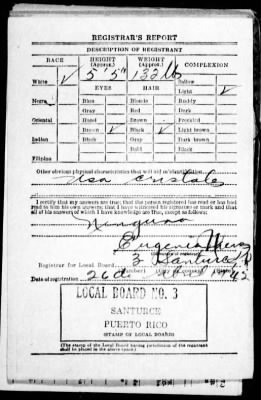 REGISTRAR'S REPORT
DESCRIPTION OF REGISTRANT
RACE HEIGHT (Approx.) WEIGHT (Approx.) COMPLEXION
5' 5" 132 lb Sallow
White ✓ EYES HAIR Light ✓
Negro Blue Blonde Ruddy
Gray Red Dark
Oriental Hazel Brown Freckled
Brown ✓ Black ✓ Light brown
Indian Black Gray Dark brown
Bald Black
Filipino
Other obvious physical characteristics that will aid in identification
Usa
I certify that my answers are true; that the person registered has read or has had
read to him his own answers; that I have witnessed his signature or mark and that
all of his answers of which I have knowledge are true, except as follows:
Ninguno
Eugenia
Registrar for Local Board 3 Santurce
Date of registration 26 de
LOCAL BOARD NO. 3
SANTURCE
PUERTO RICO
(STAMP OF LOCAL BOARD)
(The stamp of the Local Board having jurisdiction of the registrant
shall be placed in the above space.)